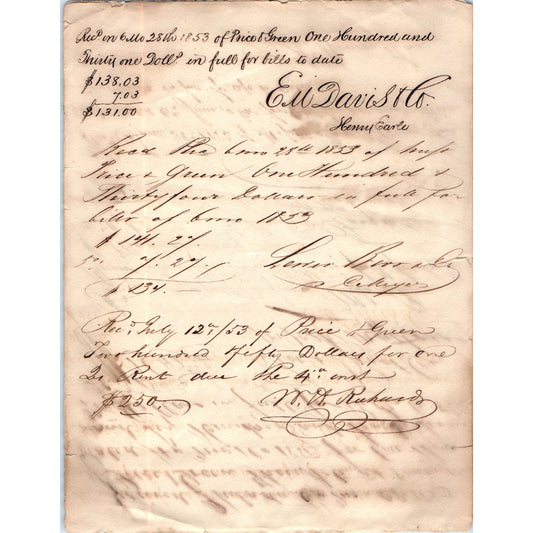 Rec'd in 6 Mo 28th 1853 of Price & Green One Hundred and
Thirty one Doll's in full for bills to date
$138.03
7.03
$131.00
E M Davis & Co.
Henry Earle
Recd Phi 6mo 28th 1853 of
Price & Green One Hundred &
Thirty four Dollars in full for
bills of 6mo 1853
$ 141.27
7.27
$ 134.
Rec'd July 12th/53 of Price & Green
Two hundred Fifty Dollars for one
Qr Rent due the 4th inst
$250.
W. H. Richards